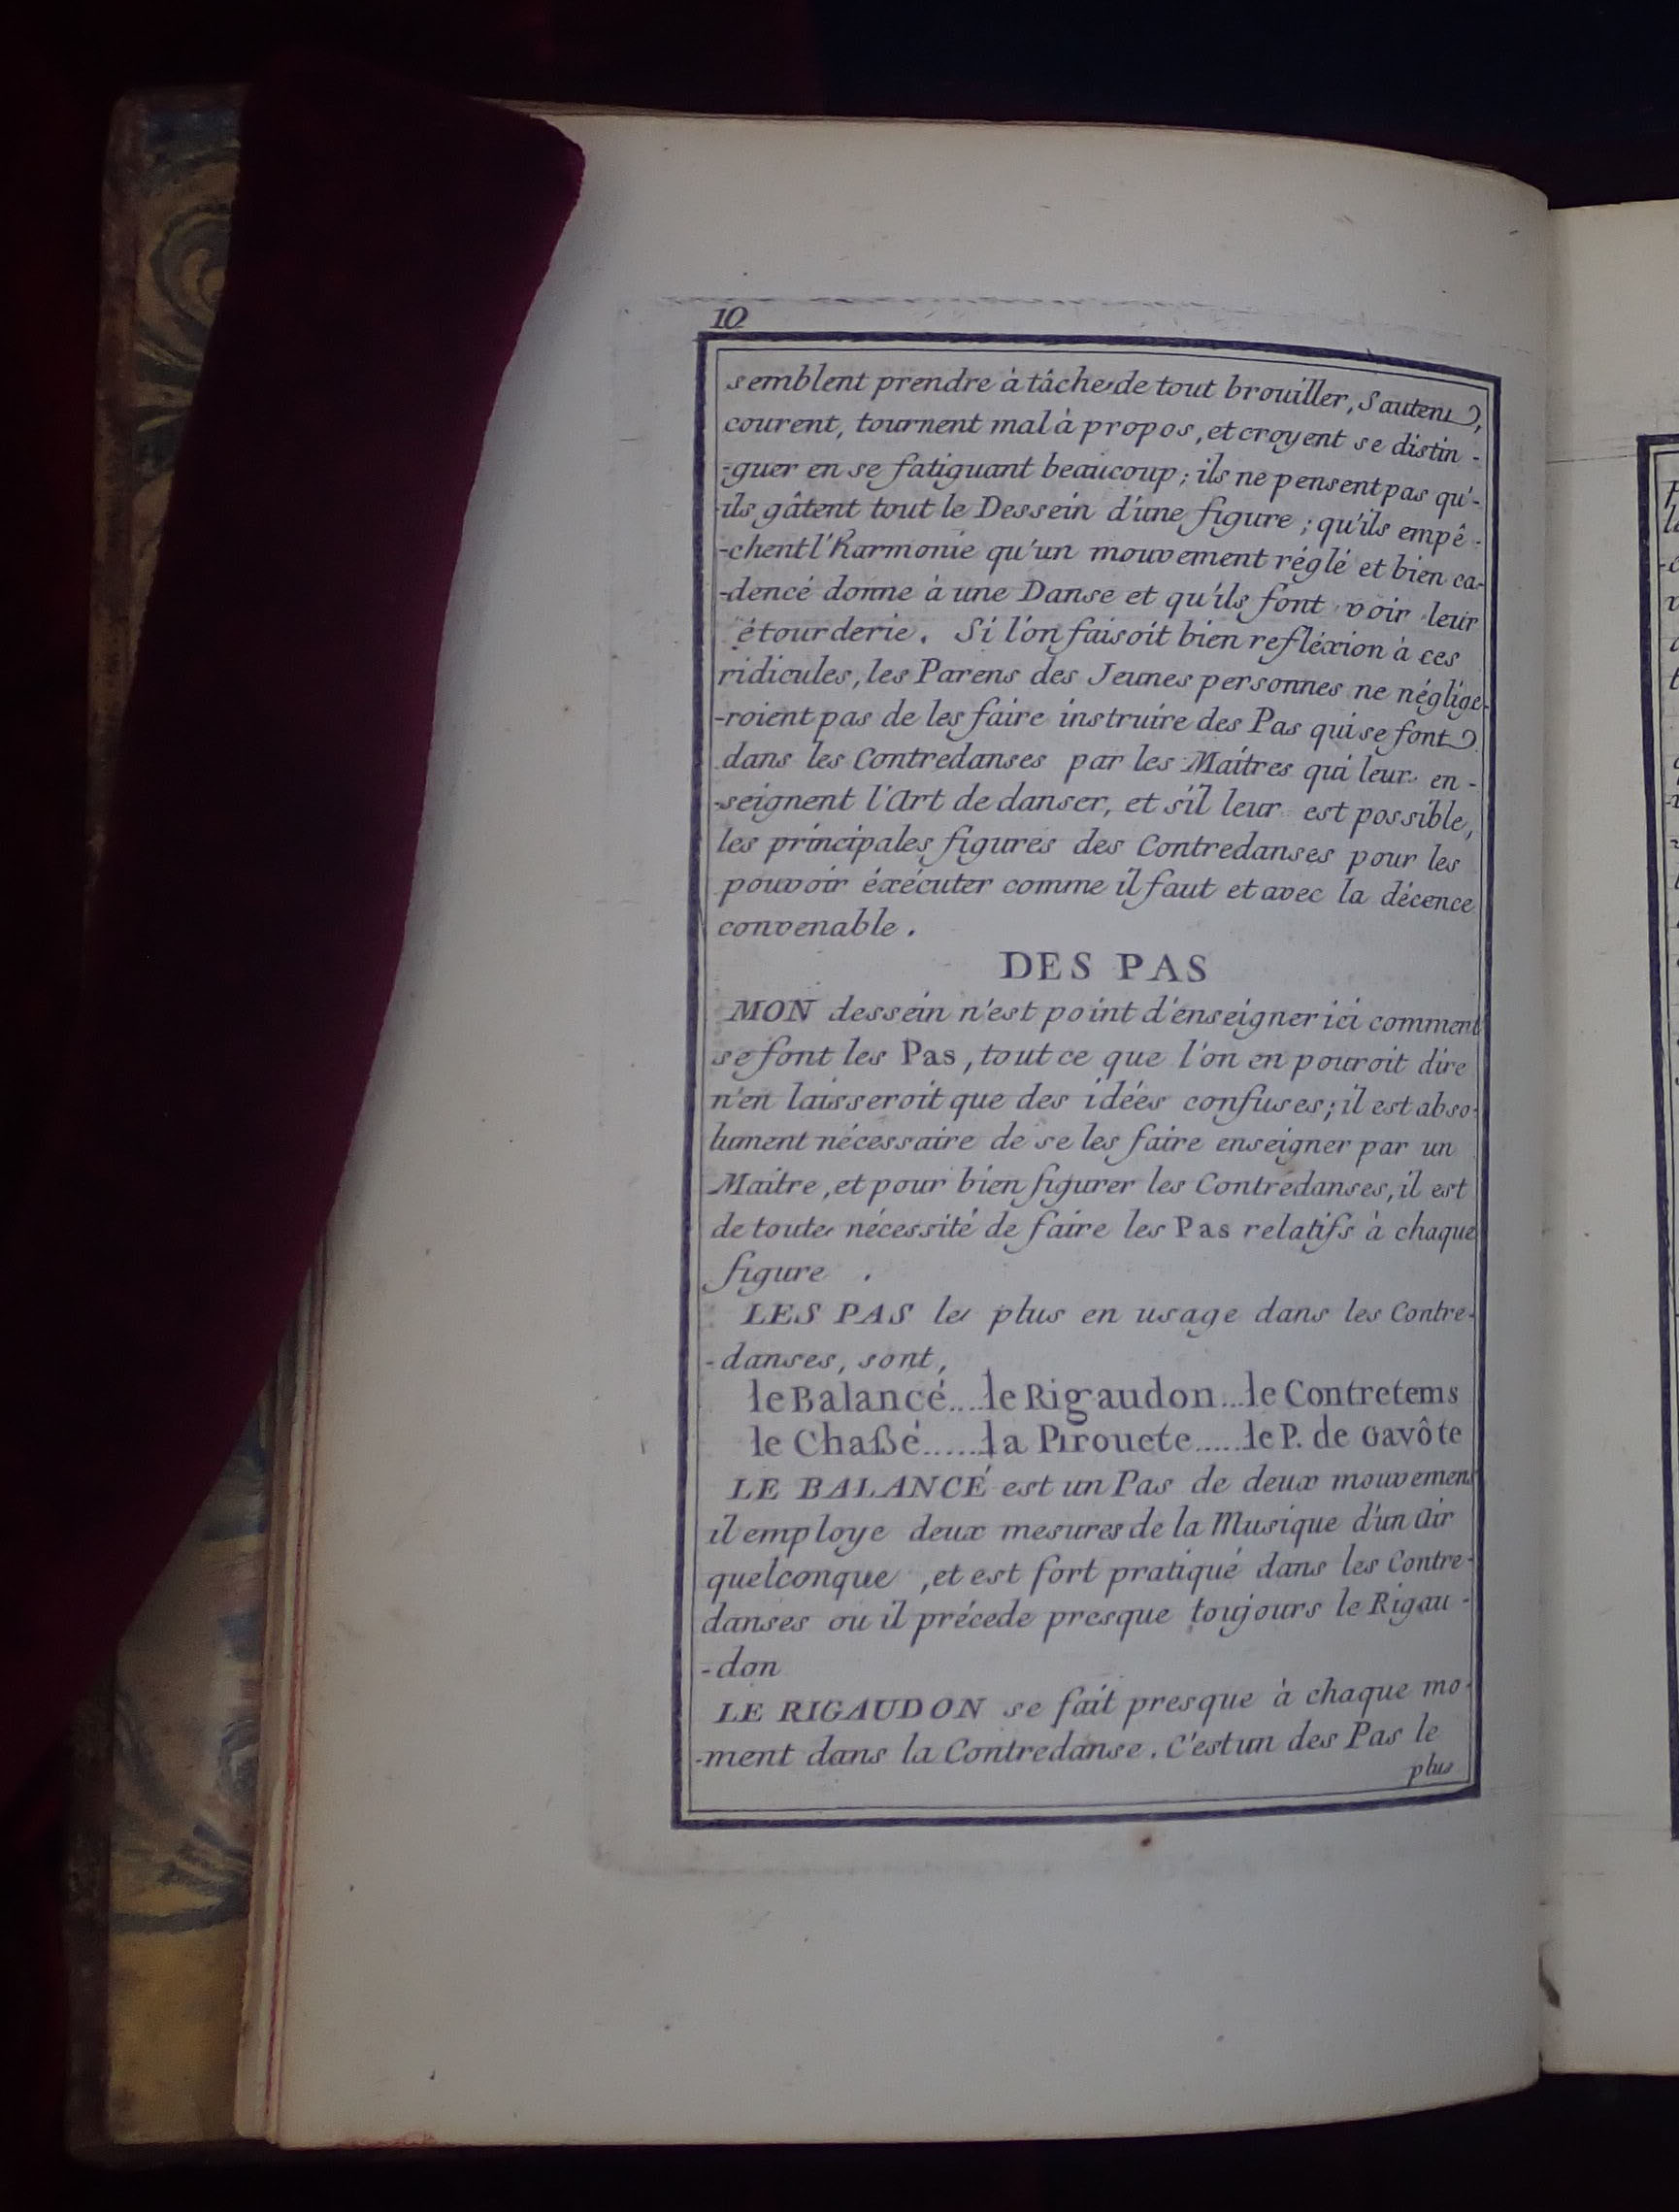 10
semblent prendre à tâche de tout brouiller, Sautent,
courent, tournent mal à propos, et croyent se distin-
-guer en se fatiguant beaucoup; ils ne pensent pas qu'-
-ils gâtent tout le Dessein d'une figure; qu'ils empê-
-chent l'Harmonie qu'un mouvement réglé et bien ca-
-dencé donne à une Danse et qu'ils font voir leur
étourderie. Si l'on faisoit bien refléxion à ces
ridicules, les Parens des Jeunes personnes ne néglige-
-roient pas de les faire instruire des Pas qui se font
dans les Contredanses par les Maîtres qui leur en-
-seignent l'Art de danser, et s'il leur est possible,
les principales figures des Contredanses pour les
pouvoir éxécuter comme il faut et avec la décence
convenable.
DES PAS
MON dessein n'est point d'enseigner ici comment
se font les Pas, tout ce que l'on en pouroit dire
n'en laisseroit que des idées confuses; il est abso-
lument nécessaire de se les faire enseigner par un
Maitre, et pour bien figurer les Contredanses, il est
de toute nécessité de faire les Pas relatifs à chaque
figure.
LES PAS les plus en usage dans les Contre-
-danses, sont,
le Balancé....le Rigaudon...le Contretems
le Chaßé......la Pirouete.....le P. de Gavôte
LE BALANCÉ est un Pas de deux mouvemens
il employe deux mesures de la Musique d'un Air
quelconque, et est fort pratiqué dans les Contre-
danses ou il précede presque toujours le Rigau-
-don
LE RIGAUDON se fait presque à chaque mo-
-ment dans la Contredanse. C'est un des Pas le
plus